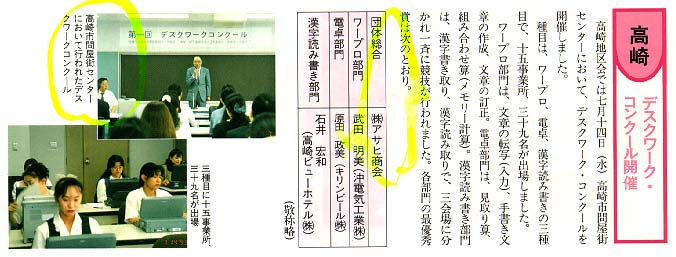 高崎
デスクワーク・
コンクール開催
高崎地区会では七月十四日（水）高崎市問屋街
センターにおいて、デスクワーク・コンクールを
開催しました。
種目は、ワープロ、電卓、漢字読み書きの三種
目で、十五事業所、三十九名が出場しました。
ワープロ部門は、文章の転写（入力）、手書き文
章の作成、文章の訂正。電卓部門は、見取り算、
組み合わせ算（メモリー計算）。漢字読み書き部門
は、漢字書き取り、漢字読み取りで、三会場に分
かれ一斉に競技が行われました。各部門の最優秀
賞は次のとおり。
団体総合　㈱アサヒ商会
ワープロ部門　武田　明美（沖電気工業㈱）
電卓部門　原田　政美（キリンビール㈱）
漢字読み書き部門　石井　宏和
（高崎ビューホテル㈱）
（敬称略）
第一回　デスクワークコンクール
高崎市問屋街センター
において行われたデス
クワークコンクール
三種目に十五事業所、
三十九名が出場